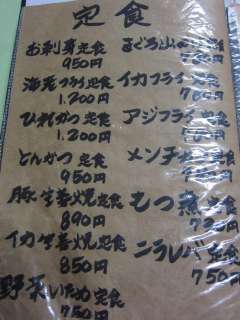 定食
お刺身定食
950円
海老フライ定食
1.200円
ひれかつ定食
1.200円
とんかつ定食
950円
豚生姜焼定食
890円
イカ生姜焼定食
850円
野菜いため定食
750円
まぐろ山
イカフライ定食
アジフライ定食
メンチ
もつ煮定食
ニラレバ定食
750円